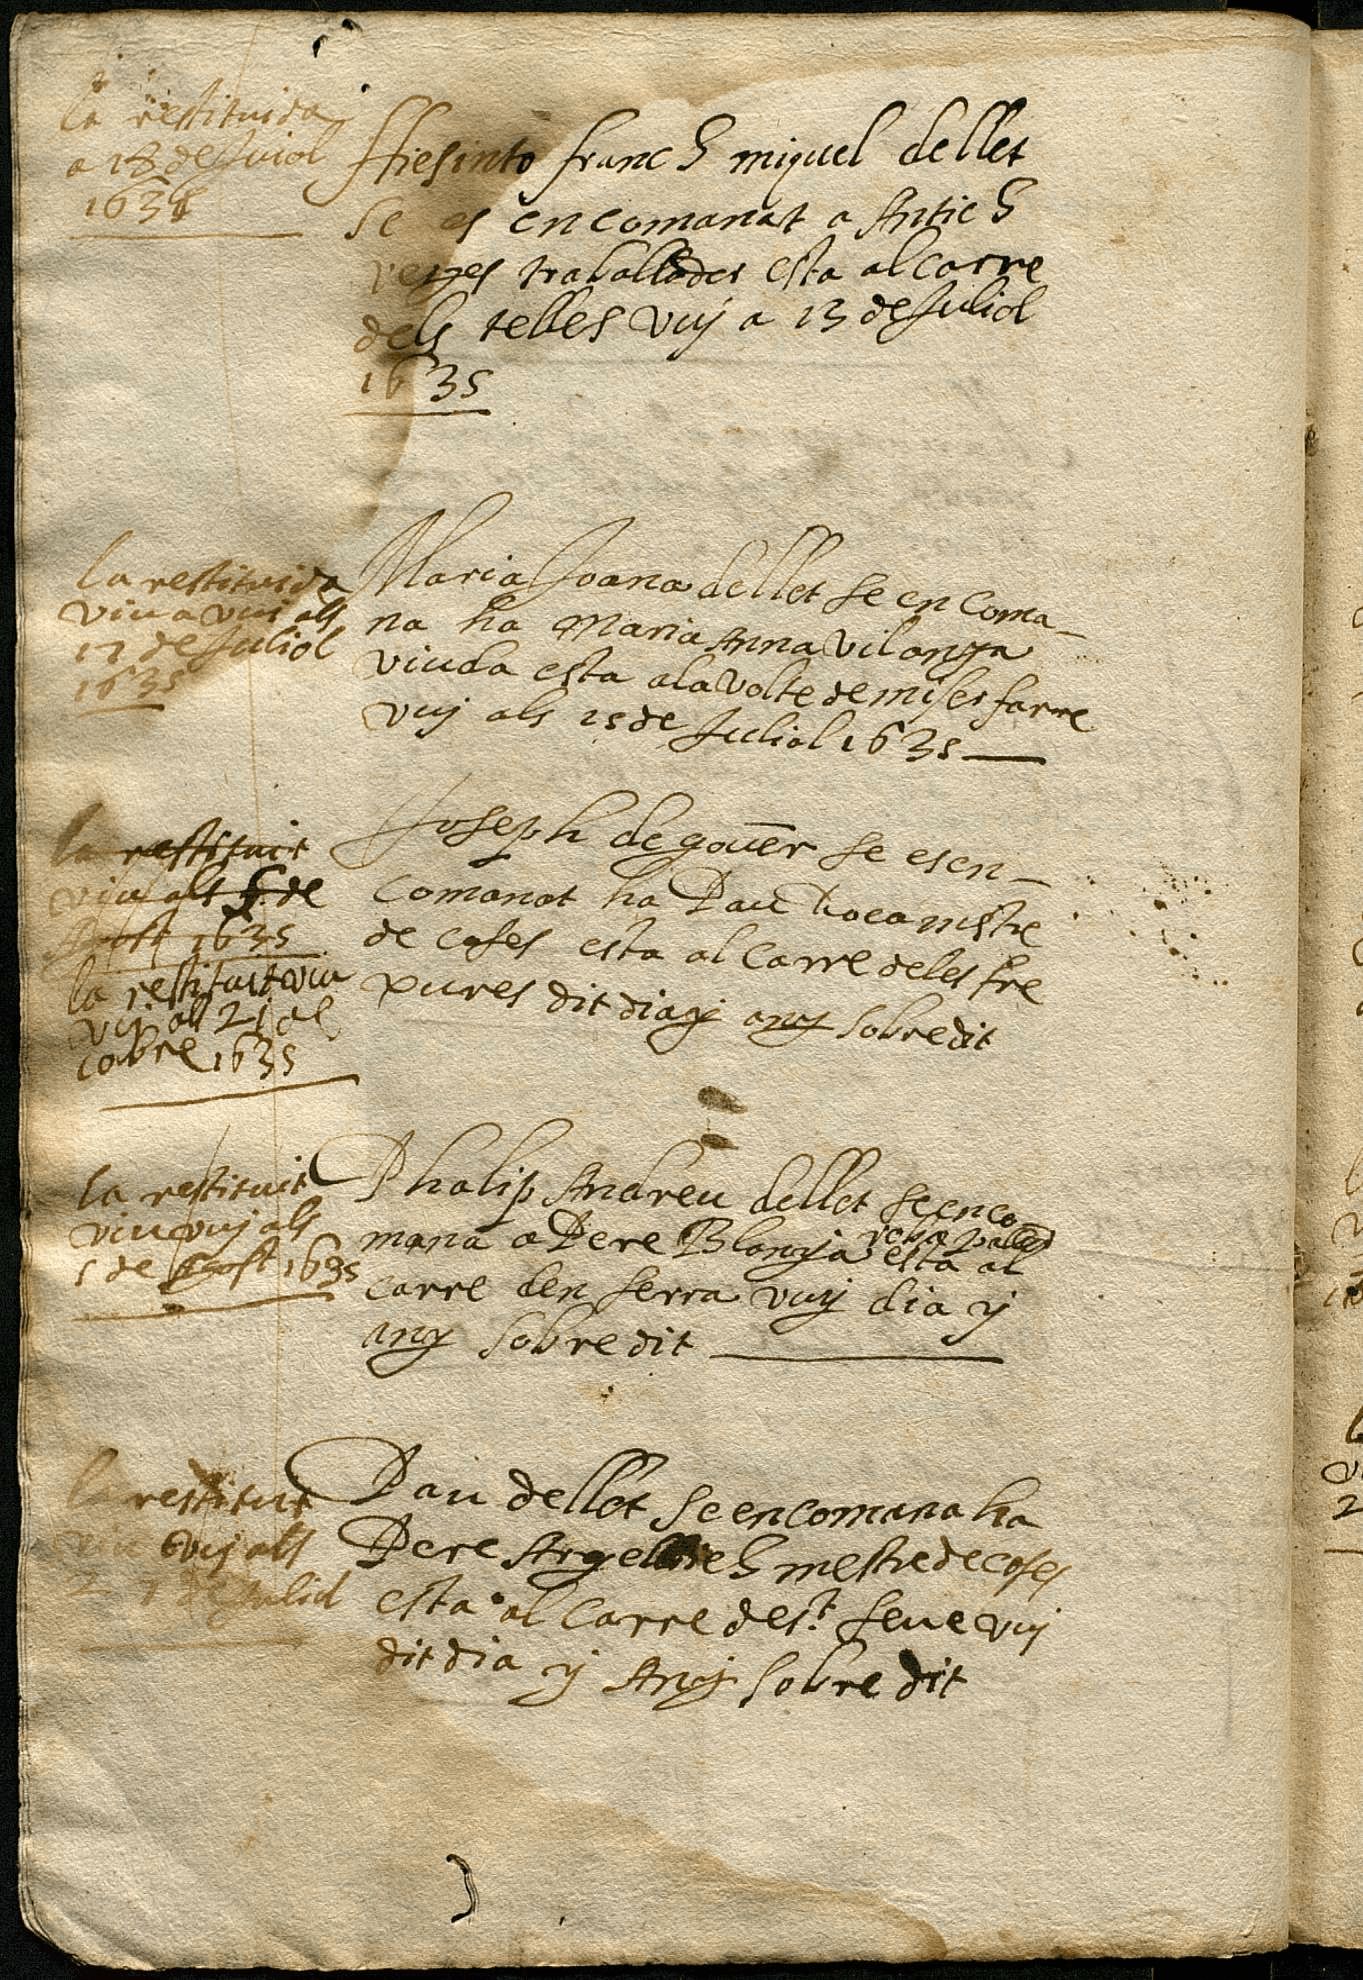 la restituida
a 18 de Juiol
1635
Hiesinto franch miquel dellet
se es encomanat a Antich
verges traballador esta al carre
dels telles vuy a 13 de Juliol
1635
la restituida
viu a vuy als
17 de Juliol
1635
Maria Joana dellet se encoma-
na ha Maria Anna vilanga
viuda esta a la volte de miser farre
vuy als 15 de Juliol 1635
la restituit
viu als 5 de
Agost 1635
la restituit viu
vuy als 21 oc
tobre 1635
Joseph de gouēr se es en-
comanat ha Pau Roca mestre
de cases esta al carre de les tre
pures dit dia y any sobredit
la restituit
viu vuy als
5 de Agost 1635
Phalip Andreu dellet se enco
mana a Pere Blonya esta al
carre den serra vuy dia y
any sobredit
la restituit
viu vuy als
2 de Juliol
Pau dellet se encomana ha
Pere Argelich mestre de cases
esta al carre de st. seue vuy
dit dia y Any sobre dit